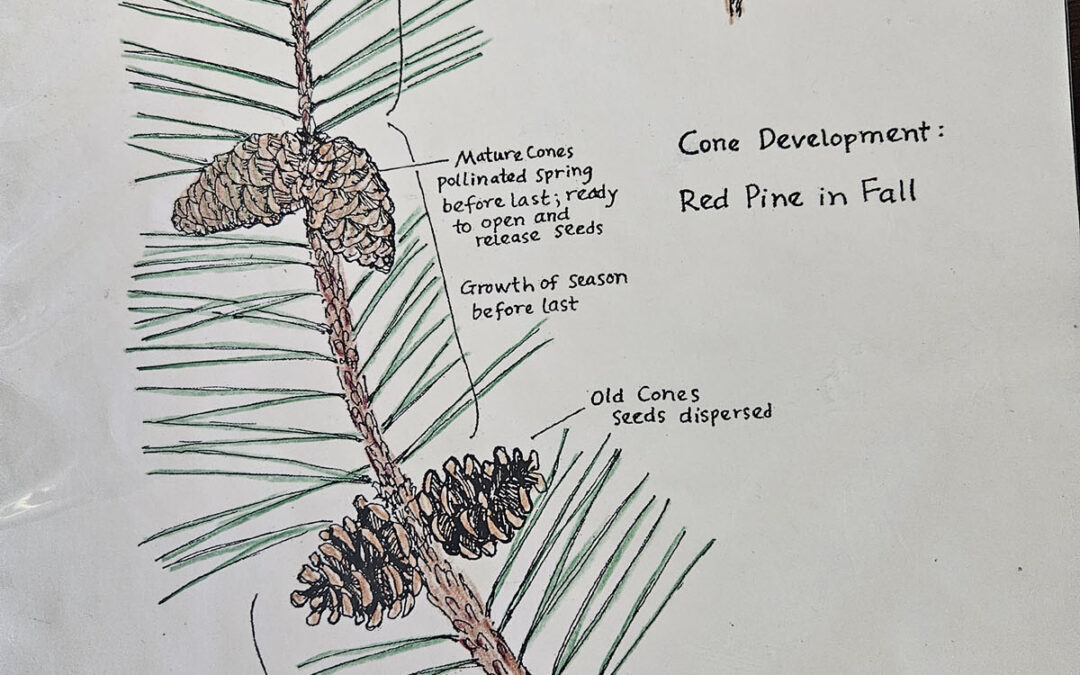 Mature Cones
pollinated spring
before last; ready
to open and
release seeds
Cone Development:
Red Pine in Fall
Growth of season
before last
Old Cones
seeds dispersed